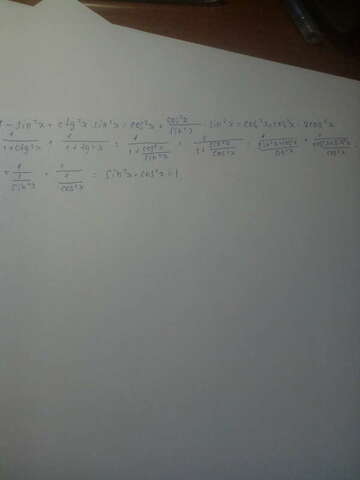 1 - sin²x + ctg²x · sin²x = cos²x + cos²x/sin²x · sin²x = cos²x + cos²x = 2cos²x
1/(1+ctg²x) + 1/(1+tg²x) = 1/(1+cos²x/sin²x) + 1/(1+sin²x/cos²x) = 1/((sin²x+cos²x)/sin²x) + 1/((cos²x+sin²x)/cos²x) =
= 1/(1/sin²x) + 1/(1/cos²x) = sin²x + cos²x = 1